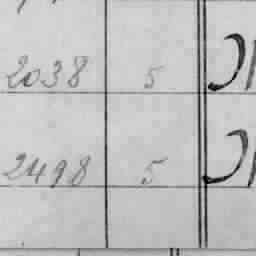 2038 5
2498 5